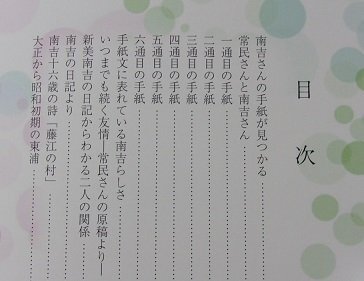 目次
南吉さんの手紙が見つかる……………
常民さんと南吉さん……………
一通目の手紙……………
二通目の手紙……………
三通目の手紙……………
四通目の手紙……………
五通目の手紙……………
六通目の手紙……………
手紙文に表れている南吉らしさ……………
いつまでも続く友情―常民さんの原稿より―
新美南吉の日記からわかる二人の関係……………
南吉の日記より……………
南吉十六歳の詩「藤江の村」……………
大正から昭和初期の東浦……………